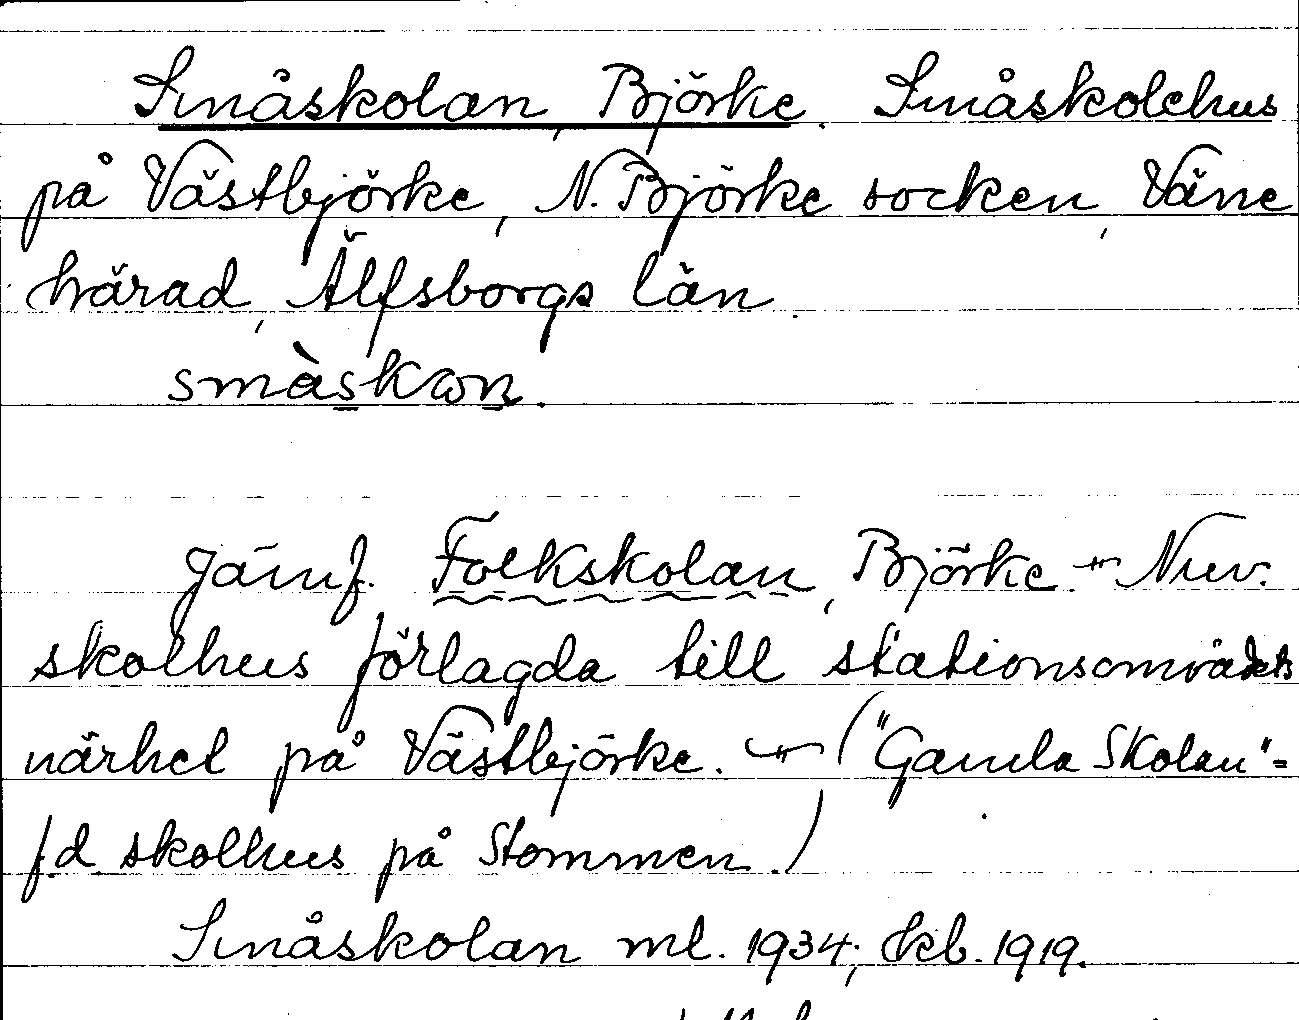 Småskolan, Björke. Småskolehus
på Västbjörke, N. Björke socken, Väne
härad, Älfsborgs län.
smàskωn.
Jämf. Folkskolan, Björke. — Nuv.
skolhus förlagda till stationsområdets
närhet på Västbjörke. — ("Gamla Skolan" =
f.d. skolhus på Stommen.)
Småskolan ml. 1934; kb. 1919.